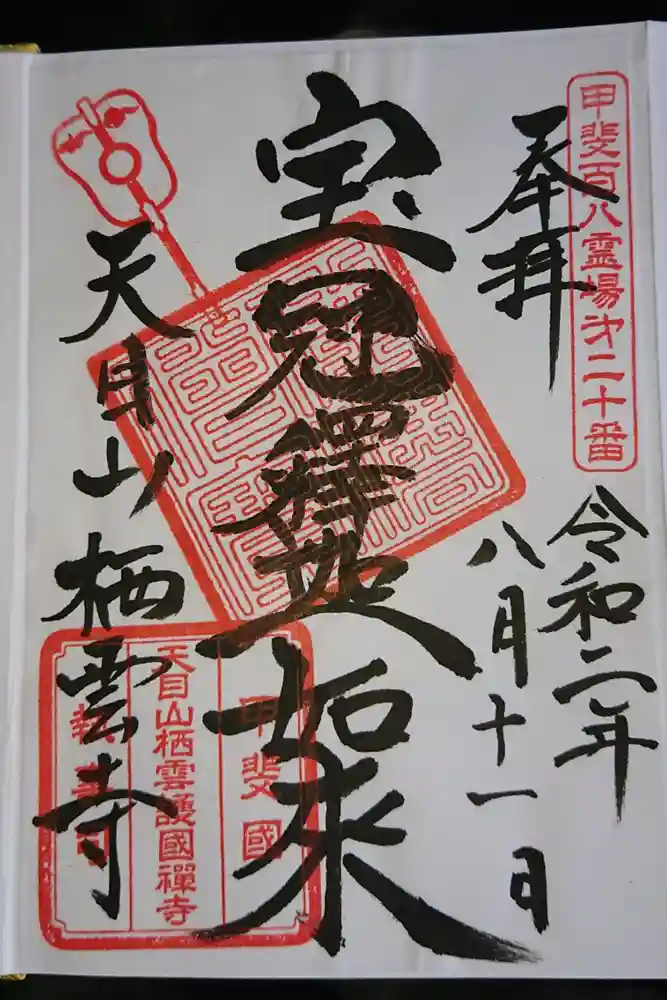 甲斐百八霊場才二十番
奉拝
令和二年
八月十一日
宝冠釋迦如来
天目山栖雲寺
甲斐國
天目山栖雲護國禪寺